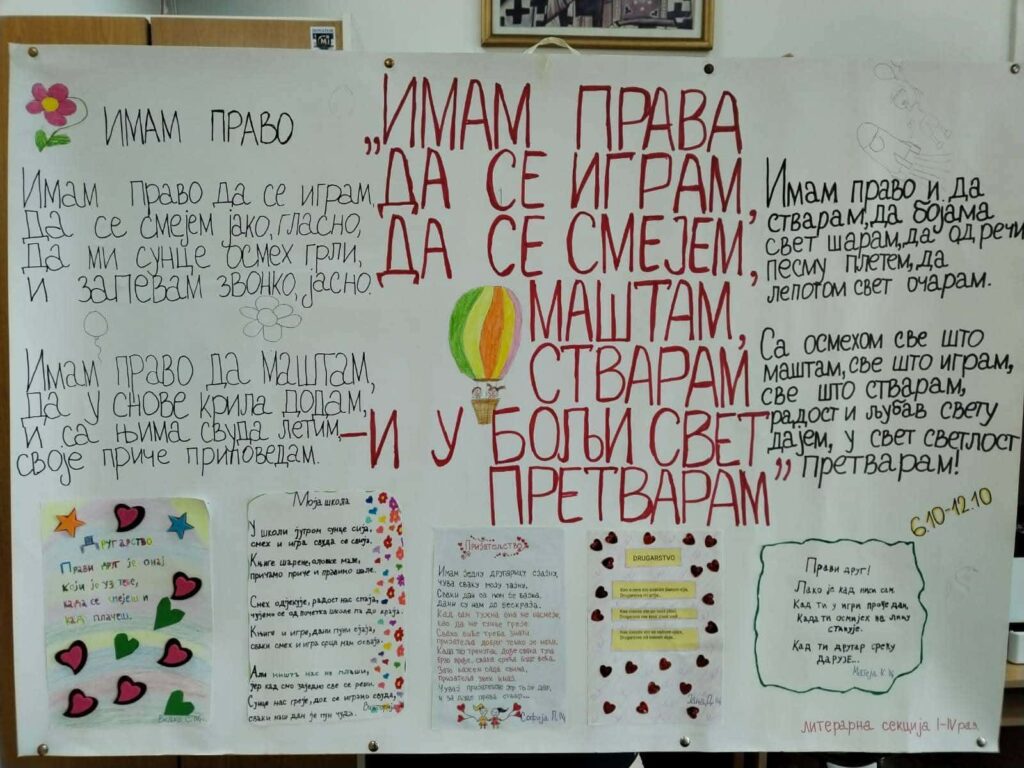 ИМАМ ПРАВО
Имам право да се играм,
Да се смејем јако, гласно,
Да ми сунце осмех грли,
и запевам звонко, јасно.
Имам право да маштам,
Да у снове крила додам,
и са њима свуда летим,
своје приче приповедам.
„ИМАМ ПРАВА
ДА СЕ ИГРАМ,
ДА СЕ СМЕЈЕМ,
МАШТАМ,
СТВАРАМ
-И У БОЉИ СВЕТ
ПРЕТВАРАМ”
Имам право и да
стварам, да бојама
свет шарам, да од речи
песму плетем, да
лепотом свет очарам.
Са осмехом све што
маштам, све што играм,
све што стварам,
радост и љубав свету
дајем, у свет светлост
претварам!
6.10-12.10
Другарство
Прави друг је онај
који је уз тебе,
када се смејеш и
кад плачеш.
Моја школа
У школи јутром сунце сија,
смех и игра свуда се свија.
Књиге шарене, оловке мале,
причамо приче и правимо шале.
Смех одјекује, радост нас спаја,
чујемо се од почетка школе па до краја.
Књиге и игре, дани пуни сјаја,
сваки смех и игра срца нам осваја.
Али ништа нас не плаши,
јер кад смо заједно све се реши.
Сунце нас греје, док се играмо свуда,
сваки наш дан је пун чуда.
Викторија
Пријатељство
Имам једну другарицу сјајну,
чува сваку моју тајну.
Сваки дан са њом се
дани су нам до бескраја.
Кад сам тужна она ме насмеје,
као да ме сунце греје.
Свако биће треба знати
Софија П. I4
DRUGARSTVO
Јана Д. I4
Прави друг!
Лако је кад ниси сам.
Кад ти у игри прође дан,
Када ти осмијех на лицу
ствује.
Кад ти другар срећу
дарује...
Матеја К. I4
литерарна секција I-IV раз.